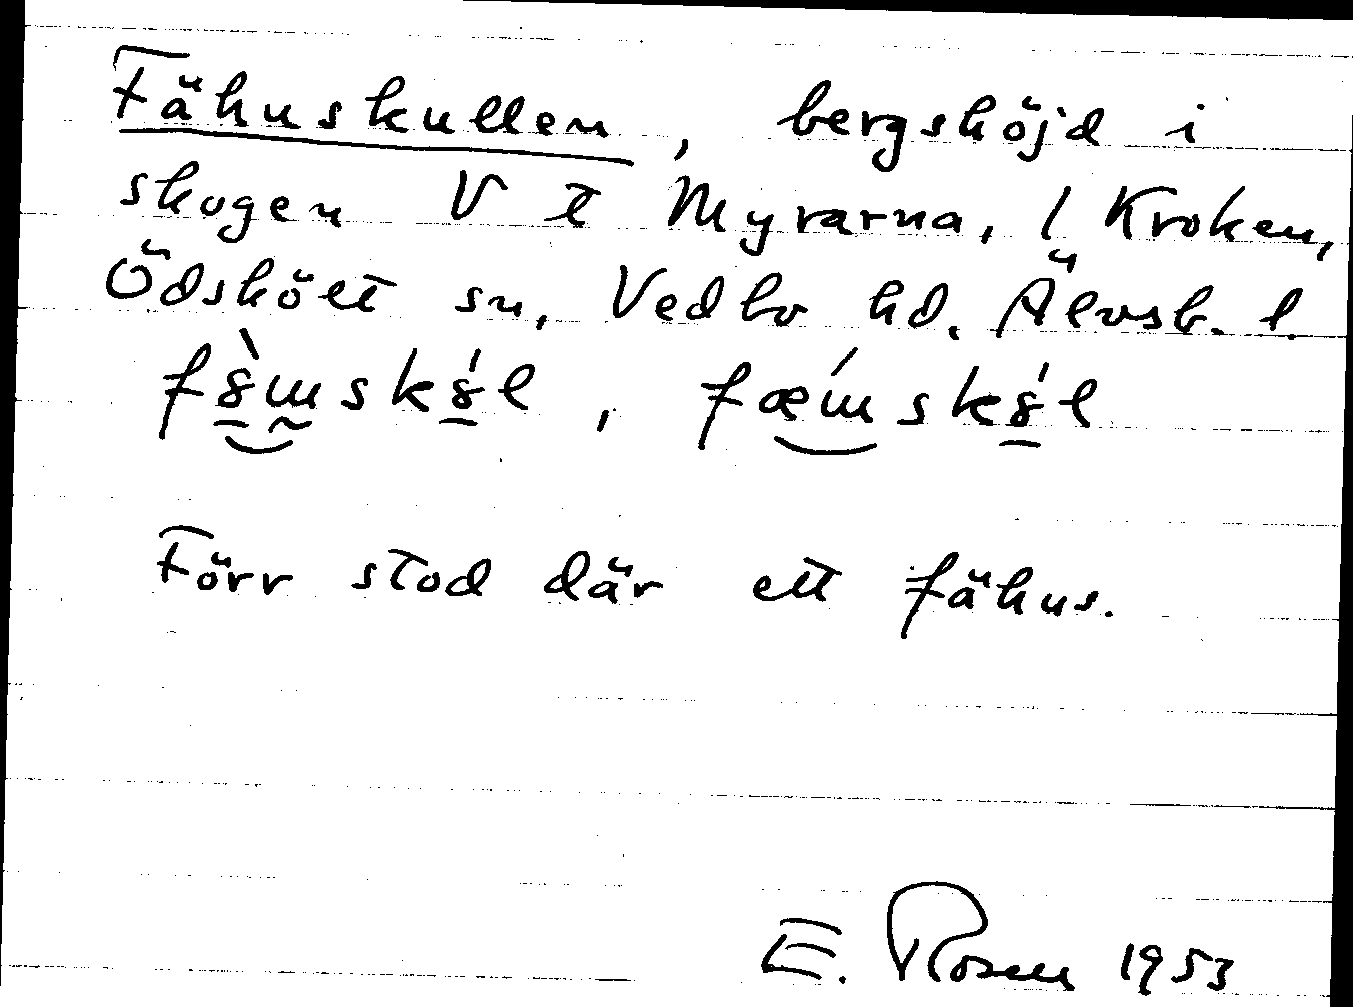 Fähuskullen, bergshöjd i
skogen V t Myrarna, / Kroken,
Ödskölt sn, Vedbo hd. Älvsb. l.
Förr stod där ett fähus.
E. Rosen 1953